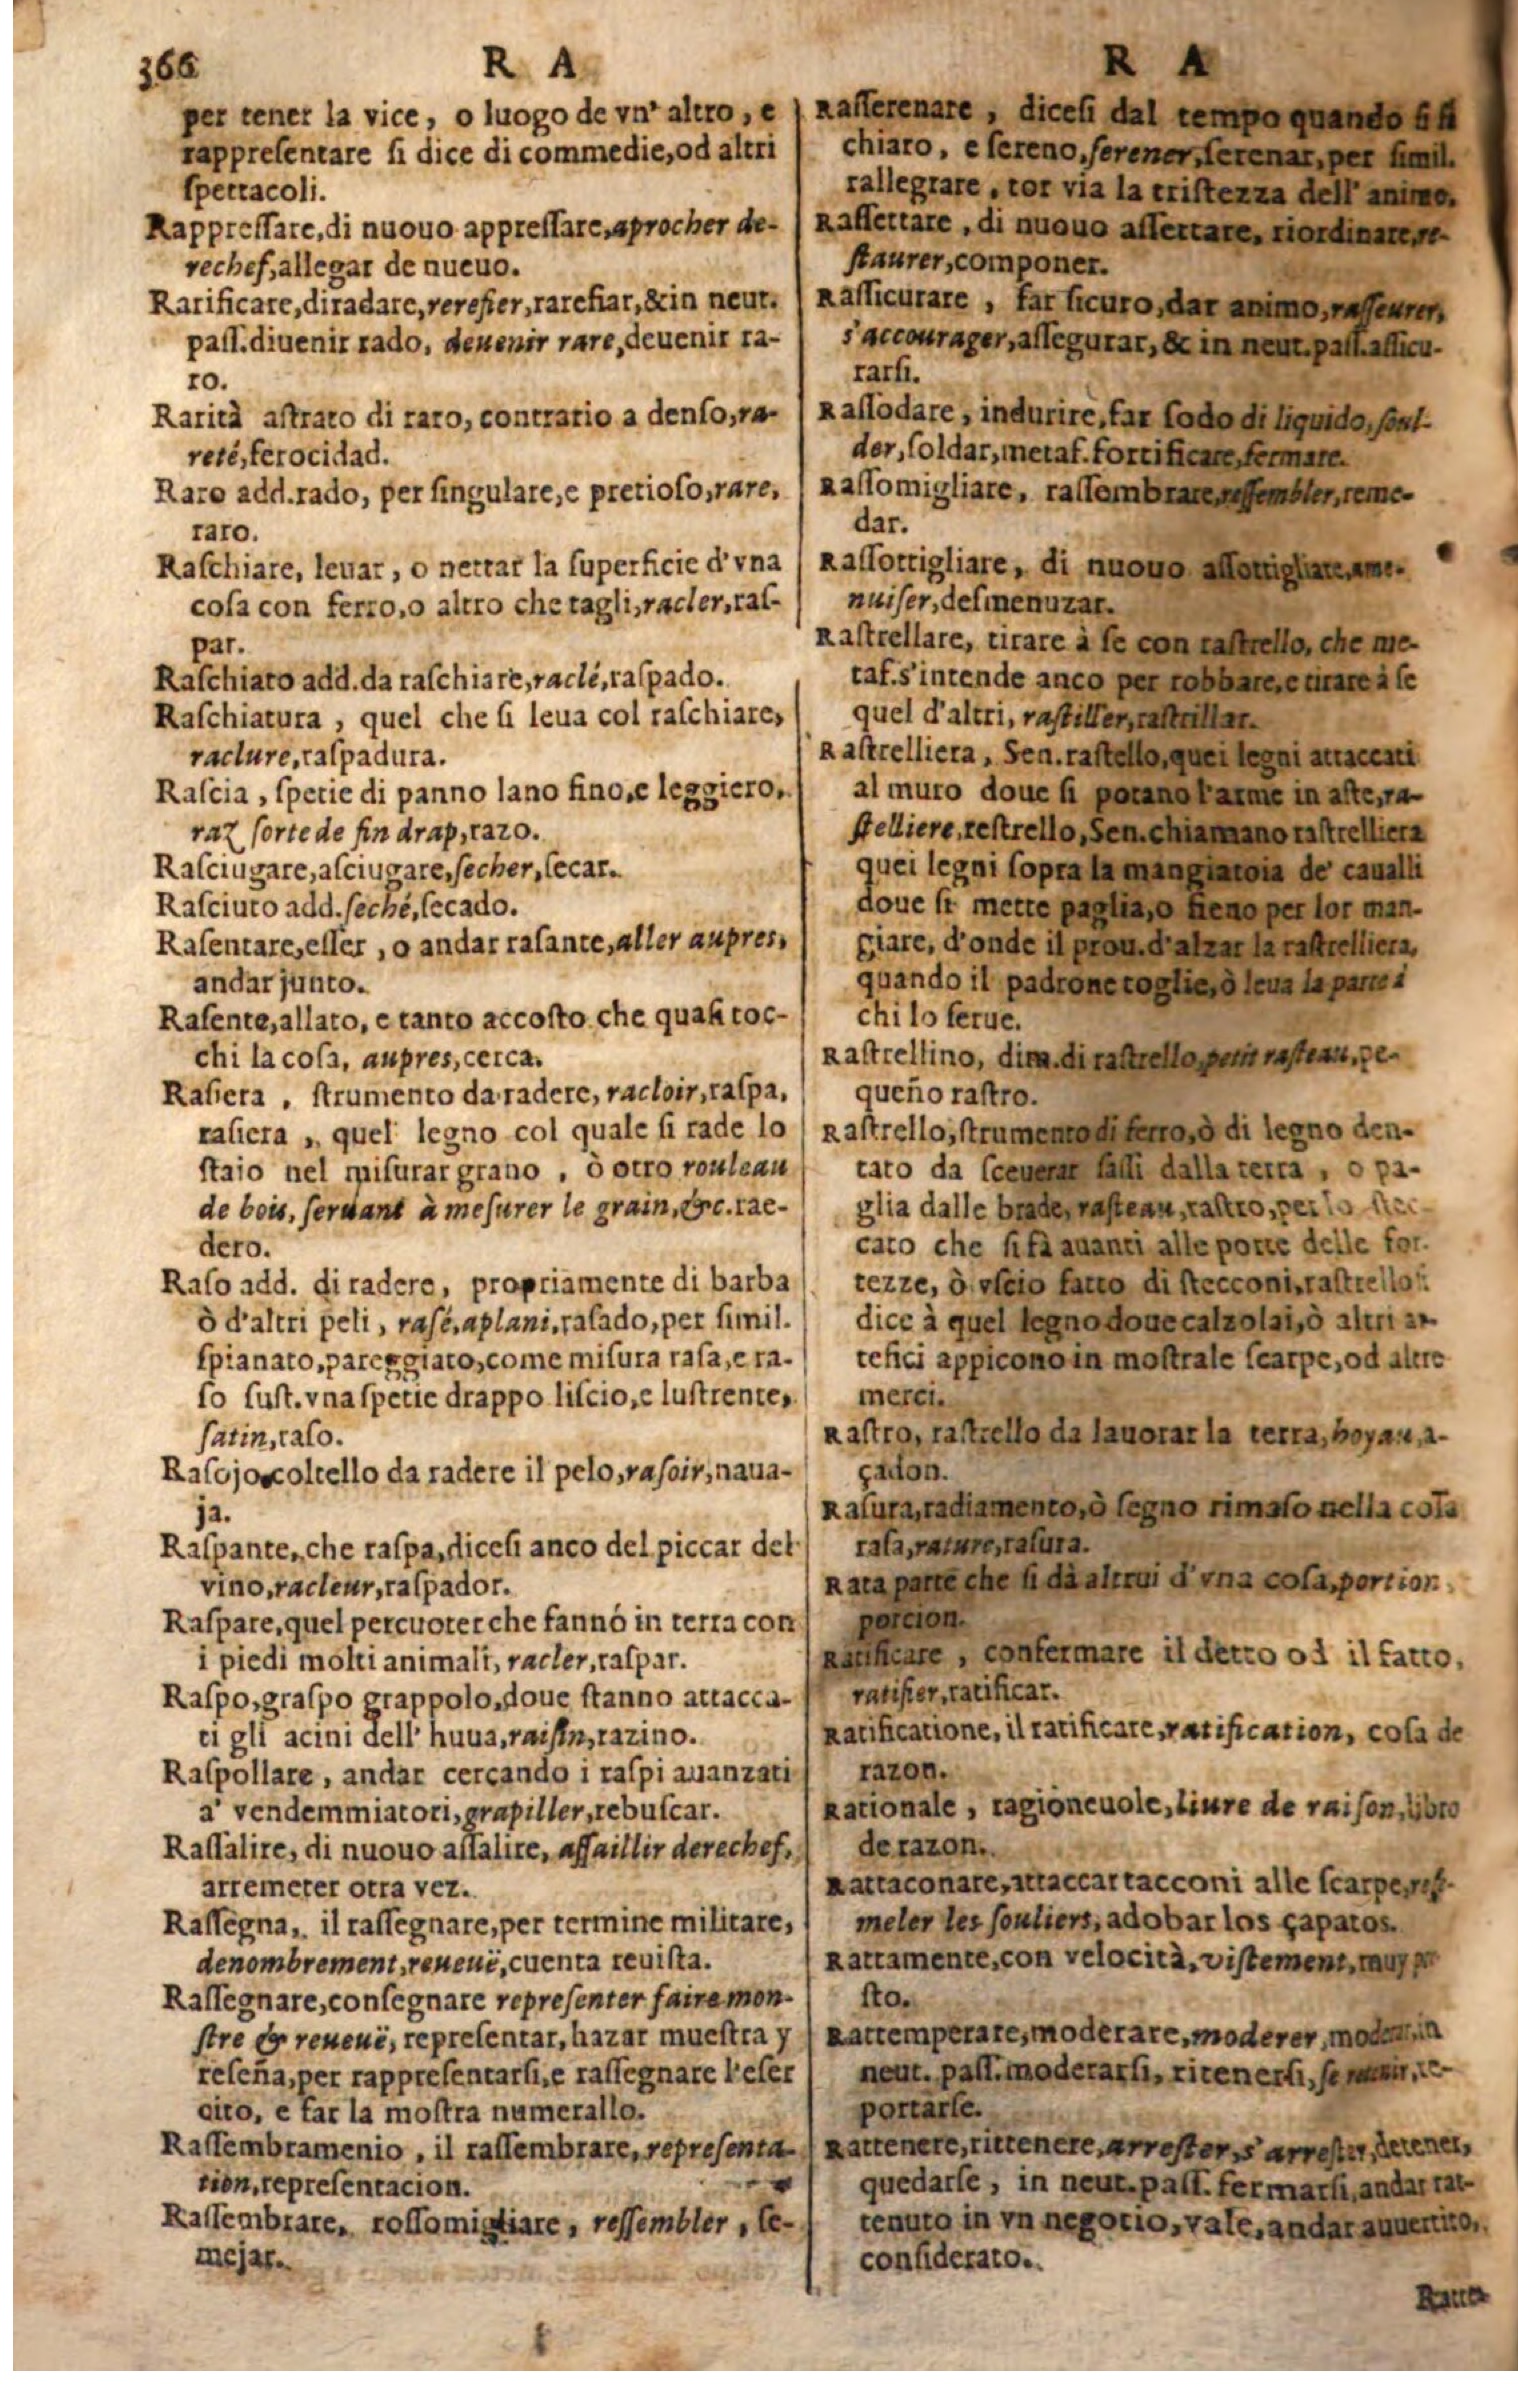 366
R A
per tener la vice, o luogo de vn' altro, e
rappreſentare ſi dice di commedie, od altri
ſpettacoli.
Rappreſſare, di nuouo appreſſare, aprocher de-
rechef, allegar de nueuo.
Rarificare, diradare, rerefier, rarefiar, & in neut.
paſſ. diuenir rado, deuenir rare, deuenir ra-
ro.
Rarità aſtrato di raro, contrario a denſo, ra-
reté, ferocidad.
Raro add. rado, per ſingulare, e pretioſo, rare,
raro.
Raſchiare, leuar, o nettar la ſuperficie d'vna
coſa con ferro, o altro che tagli, racler, raſ-
par.
Raſchiato add. da raſchiare, raclé, raſpado.
Raſchiatura, quel che ſi leua col raſchiare,
raclure, raſpadura.
Raſcia, ſpetie di panno lano fino, e leggiero,
raz ſorte de fin drap, razo.
Raſciugare, aſciugare, ſecher, ſecar.
Raſciuto add. ſeché, ſecado.
Raſentare, eſſer, o andar raſante, aller aupres,
andar junto.
Raſente, allato, e tanto accoſto che quaſi toc-
chi la coſa, aupres, cerca.
Raſiera, ſtrumento da radere, racloir, raſpa,
raſiera, quel legno col quale ſi rade lo
ſtaio nel miſurar grano, ò otro rouleau
de bois, ſeruant à meſurer le grain, &c. rae-
dero.
Raſo add. di radere, propriamente di barba
ò d'altri peli, raſé, aplani, raſado, per ſimil.
ſpianato, pareggiato, come miſura raſa, e ra-
ſo ſuſt. vna ſpetie drappo liſcio, e luſtrente,
ſatin, raſo.
Raſojo, coltello da radere il pelo, raſoir, naua-
ja.
Raſpante, che raſpa, diceſi anco del piccar del
vino, racleur, raſpador.
Raſpare, quel percuoter che fannó in terra con
i piedi molti animali, racler, raſpar.
Raſpo, graſpo grappolo, doue ſtanno attacca-
ti gli acini dell' huua, raiſin, razino.
Raſpollare, andar cercando i raſpi auanzati
a' vendemmiatori, grapiller, rebuſcar.
Raſſalire, di nuouo aſſalire, aſſaillir derechef,
arremeter otra vez.
Raſſegna, il raſſegnare, per termine militare,
denombrement, reueuë, cuenta reuiſta.
Raſſegnare, conſegnare repreſenter faire mon-
ſtre & reueuë, repreſentar, hazar mueſtra y
reſeña, per rappreſentarſi, e raſſegnare l'eſer
cito, e far la moſtra numerallo.
Raſſembramenio, il raſſembrare, repreſenta-
tion, repreſentacion.
Raſſembrare, roſſomigliare, reſſembler, ſe-
mejar.
R A
Raſſerenare, diceſi dal tempo quando ſi fà
chiaro, e ſereno, ſerener, ſerenar, per ſimil.
rallegrare, tor via la triſtezza dell' animo.
Raſſettare, di nuouo aſſettare, riordinare, re-
ſtaurer, componer.
Raſſicurare, far ſicuro, dar animo, raſſeurer,
s'accourager, aſſegurar, & in neut. paſſ. aſſicu-
rarſi.
Raſſodare, indurire, far ſodo di liquido, ſoul-
der, ſoldar, metaf. fortificare, fermare.
Raſſomigliare, raſſembrare, reſſembler, reme-
dar.
Raſſottigliare, di nuouo aſſottigliare, ame-
nuiſer, deſmenuzar.
Raſtrellare, tirare à ſe con raſtrello, che me-
taf. s'intende anco per robbare, e tirare à ſe
quel d'altri, raſtiller, raſtrillar.
Raſtrelliera, Sen. raſtello, quei legni attaccati
al muro doue ſi poſano l'arme in aſte, ra-
ſtelliere, reſtrello, Sen. chiamano raſtrelliera
quei legni ſopra la mangiatoia de' caualli
doue ſi mette paglia, o fieno per lor man-
giare, d'onde il prou. d'alzar la raſtrelliera,
quando il padrone toglie, ò leua la parte à
chi lo ſerue.
Raſtrellino, dim. di raſtrello, petit raſteau, pe-
queño raſtro.
Raſtrello, ſtrumento di ferro, ò di legno den-
tato da ſceuerar ſaſſi dalla terra, o pa-
glia dalle brade, raſteau, raſtro, per lo ſtec-
cato che ſi fà auanti alle porte delle for-
tezze, ò vſcio fatto di ſtecconi, raſtrello ſi
dice à quel legno doue calzolai, ò altri ar-
tefici appicono in moſtrale ſcarpe, od altre
merci.
Raſtro, raſtrello da lauorar la terra, hoyau, a-
çadon.
Raſura, radiamento, ò ſegno rimaſo nella coſa
raſa, rature, raſura.
Rata parte che ſi dà altrui d'vna coſa, portion,
porcion.
Ratificare, confermare il detto od il fatto,
ratifier, ratificar.
Ratificatione, il ratificare, ratification, coſa de
razon.
Rationale, ragioneuole, liure de raiſon, libro
de razon.
Rattaconare, attaccar tacconi alle ſcarpe, reſ-
meler les ſouliers, adobar los çapatos.
Rattamente, con velocità, viſtement, muy
ſto.
Rattemperare, moderare, moderer, moderar, in
neut. paſſ. moderarſi, ritenerſi, ſe retenir, re-
portarſe.
Rattenere, rittenere, arreſter, s'arreſter, detener,
quedarſe, in neut. paſſ. fermarſi, andar rat-
tenuto in vn negotio, vale, andar auuertito,
conſiderato.
Ratte